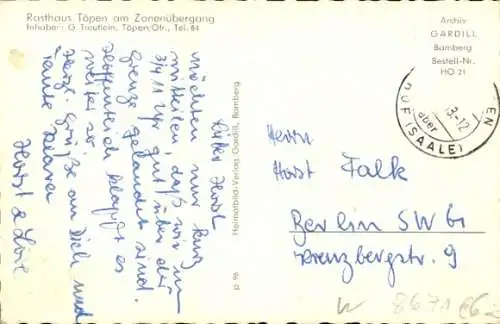 Rasthaus Töpen am Zonenübergang
Inhaber: G. Treutlein, Töpen/Ofr., Tel. 64
Archiv
GARDILL
Bamberg
Bestell-Nr.
HO 21
Lieber Horst
möchten nur kurz
mitteilen, daß wir um
3/4 11 Uhr gut über der
Grenze gelandet sind.
Hoffentlich klappt es
weiter so.
Herzl. Grüße an Dich und
Tante
Horst &
Heimatbild-Verlag Gardill, Bamberg
p 96
13.-12
über
HOF (SAALE)
Herrn
Horst Falk
Berlin SW 61
Kreuzbergstr. 9
8671